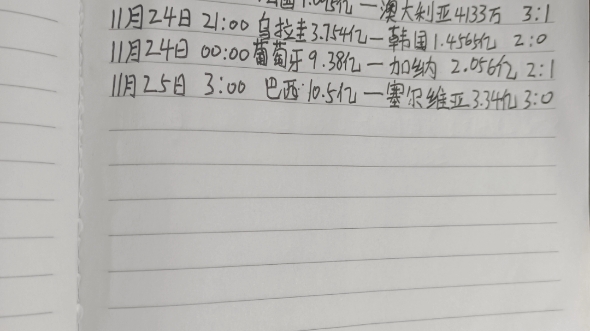 1.095亿 — 澳大利亚4133万 3:1
11月24日 21:00 乌拉圭3.754亿 — 韩国1.4565亿 2:0
11月24日 00:00 葡萄牙9.38亿 — 加纳 2.056亿 2:1
11月25日 3:00 巴西10.5亿 — 塞尔维亚3.34亿 3:0